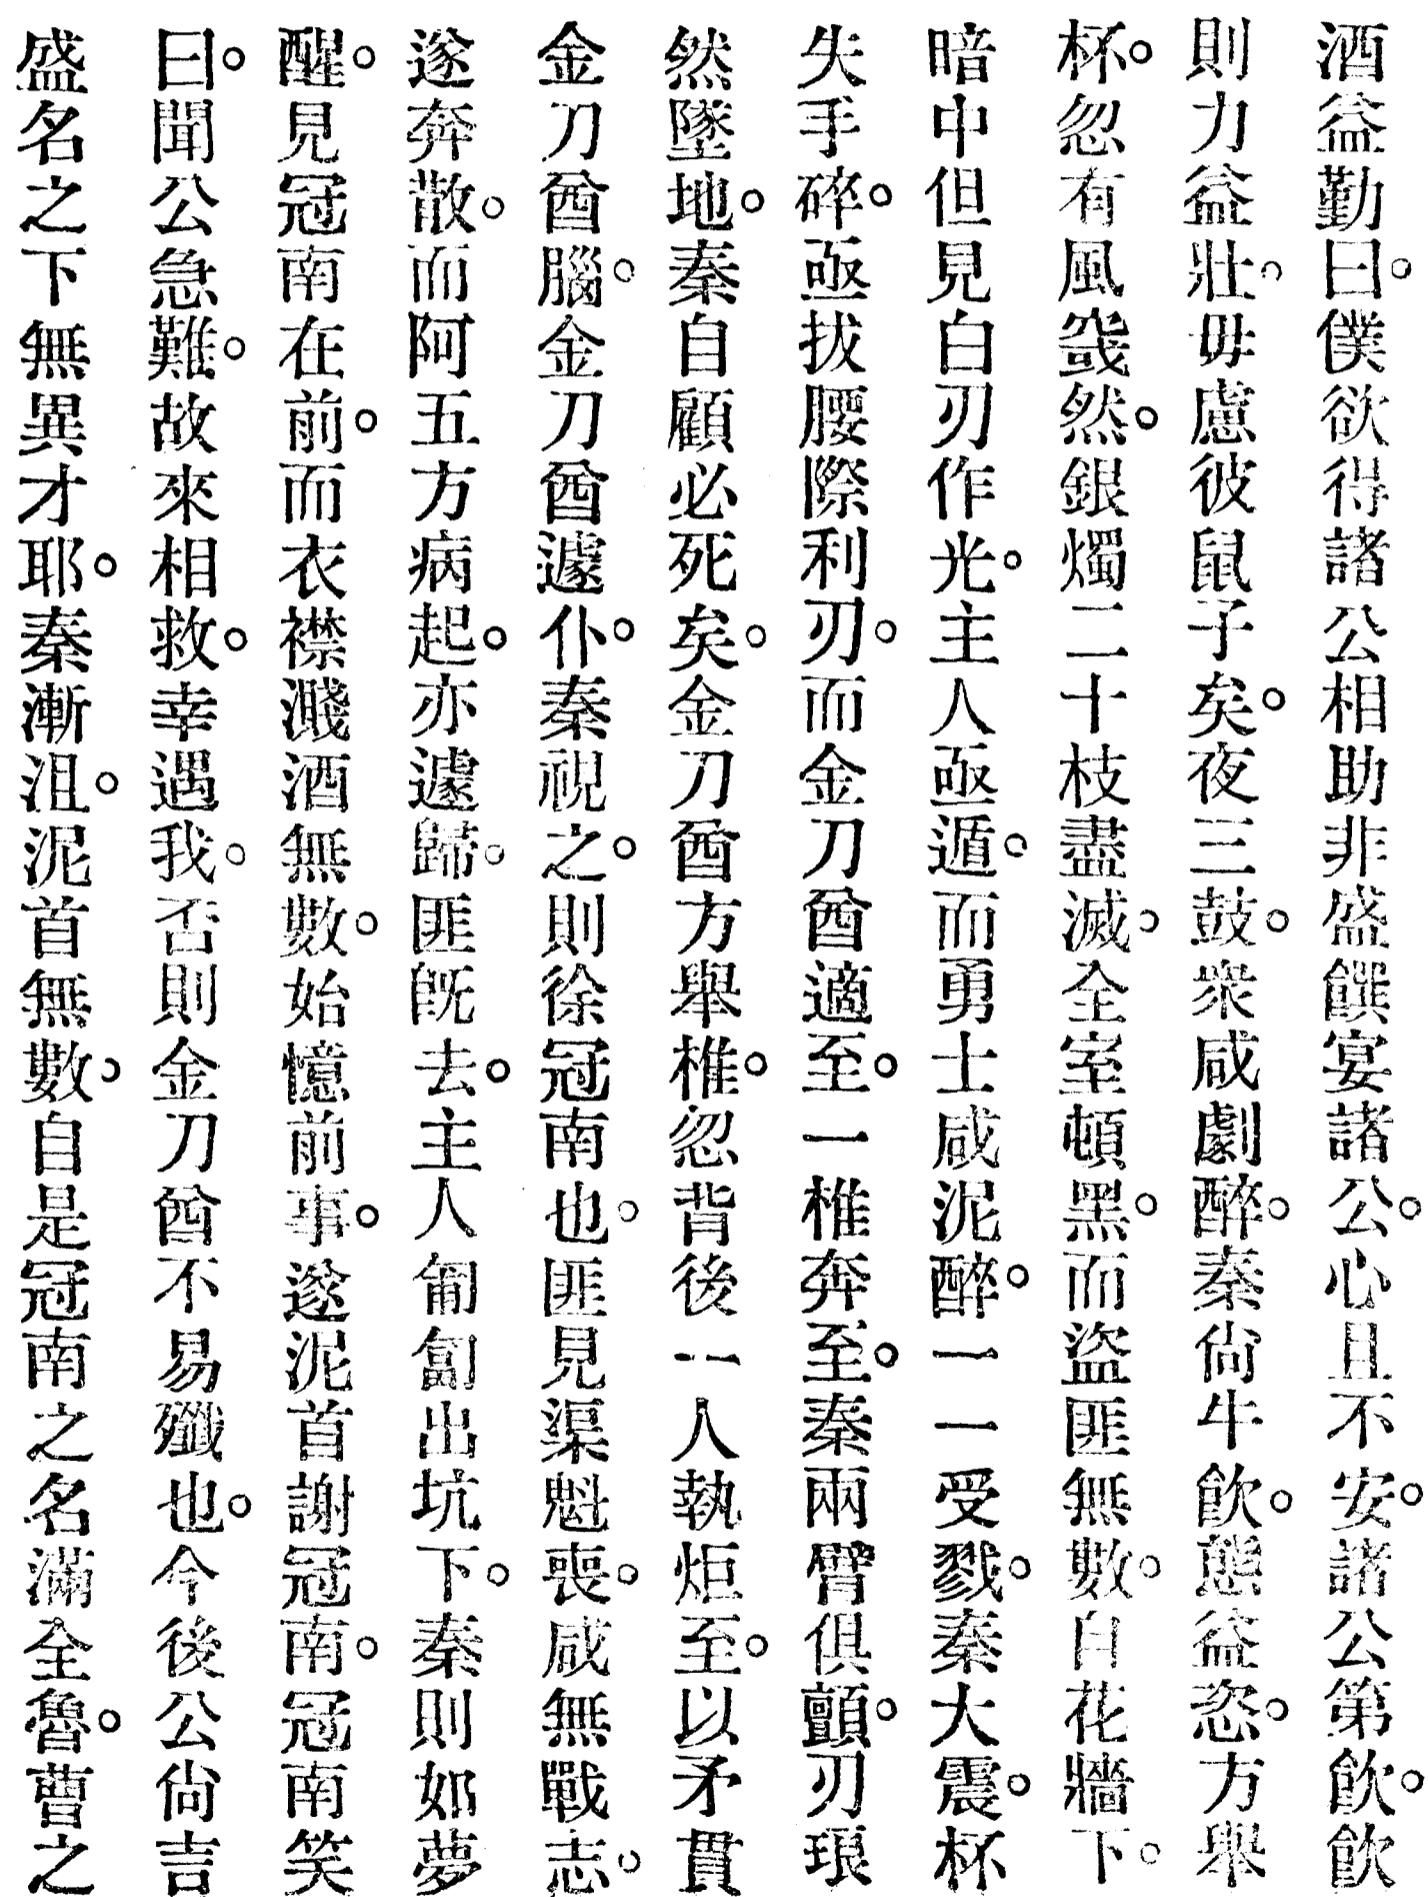 酒益勤曰。僕欲得諸公相助非盛饌宴諸公。心且不安。諸公第飲。飲
則力益壯。毋慮彼鼠子矣。夜三鼓。衆咸劇醉。秦尙牛飲。態益恣。方舉
杯。忽有風戞然。銀燭二十枝盡滅。全室頓黑。而盜匪無數。自花牆下。
暗中但見白刃作光。主人亟遁。而勇士咸泥醉。一一受戮。秦大震。杯
失手碎。亟拔腰際利刃。而金刀酋適至。一椎奔至。秦兩臂俱顫。刃琅
然墜地。秦自顧必死矣。金刀酋方舉椎。忽背後一人執炬至。以矛貫
金刀酋腦。金刀酋遽仆。秦視之。則徐冠南也。匪見渠魁喪。咸無戰志。
遂奔散。而阿五方病起。亦遽歸。匪旣去。主人匍匐出坑下。秦則如夢
醒。見冠南在前。而衣襟濺酒無數。始憶前事。遂泥首謝冠南。冠南笑
曰。聞公急難。故來相救。幸遇我。否則金刀酋不易殲也。今後公尙言
盛名之下無異才耶。秦漸沮。泥首無數。自是冠南之名滿全魯。曹之